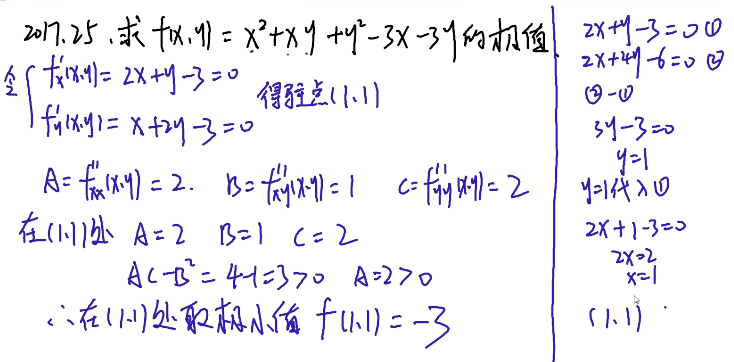 2017.25.求 f(x,y) = x²+xy+y²-3x-3y的极值
令 { f'x(x,y) = 2x+y-3=0
f'y(x,y) = x+2y-3=0
得驻点(1,1)
A=f''xx(x,y)=2. B=f''xy(x,y)=1 C=f''yy(x,y)=2
在(1,1)处 A=2 B=1 C=2
AC-B²=4-1=3>0 A=2>0
∴在(1,1)处取极小值 f(1,1)=-3
2x+y-3=0 ①
2x+4y-6=0 ②
②-①
3y-3=0
y=1
y=1代入①
2x+1-3=0
2x=2
x=1
(1,1)